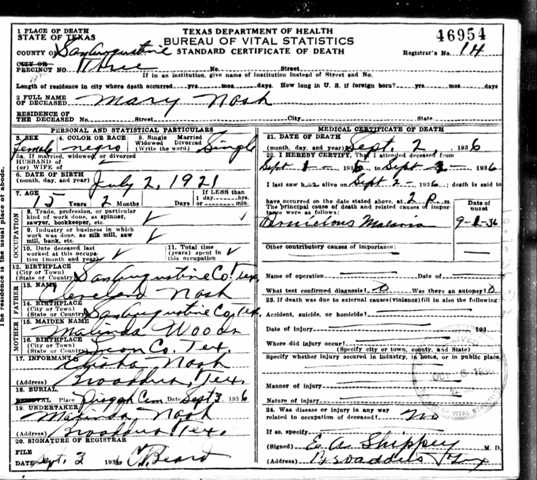 1 PLACE OF DEATH
STATE OF TEXAS
TEXAS DEPARTMENT OF HEALTH
BUREAU OF VITAL STATISTICS
STANDARD CERTIFICATE OF DEATH
46954
COUNTY OF San Augustine
Registrar's No. 14
CITY OR
PRECINCT NO. Three No. Street
If in an institution, give name of institution instead of Street and No.
Length of residence in city where death occurred yrs. mos. days. How long in U. S. if foreign born? yrs. mos. days
2 FULL NAME
OF DECEASED Mary Nash
RESIDENCE OF
THE DECEASED No. Street City State
The residence is the usual place of abode.
PERSONAL AND STATISTICAL PARTICULARS
3. SEX 4. COLOR OR RACE 5. Single Married Widowed Divorced (Write the word)
Female negro Single
5a. If married, widowed or divorced
HUSBAND OF
(or) WIFE OF
6. DATE OF BIRTH
(month, day, and year) July 2, 1921
7. AGE If less than 1 day
15 Years 2 Months Days hrs. or min.
OCCUPATION
8. Trade, profession, or particular
kind of work done, as spinner,
sawyer, bookkeeper, etc.
9. Industry or business in which
work was done, as silk mill, saw
mill, bank, etc.
10. Date deceased last
worked at this occupation
(month and year)
11. Total time
(years) spent in
this occupation
12. BIRTHPLACE
(City or Town)
(State or Country) San Augustine Co. Tex.
FATHER
13. NAME Nash
14. BIRTHPLACE
(City or Town)
(State or Country) San Augustine Co, Tex
MOTHER
15. MAIDEN NAME
Malinda Woods
16. BIRTHPLACE
(City or Town)
(State or Country) Co, Tex
17. INFORMANT Nash
(Address) Tex.
18. BURIAL
REMOVAL Place Cem Date Sept 3 1936
19. UNDERTAKER
Malinda Nash
(Address) Tex.
20. SIGNATURE OF REGISTRAR
FILE
DATE Sept. 2 1936 Beard
MEDICAL CERTIFICATE OF DEATH
21. DATE OF DEATH
(month, day, and year) Sept. 2 1936
22. I HEREBY CERTIFY, That I attended deceased from
I last saw h alive on Sept 2 1936, death is said to
have occurred on the date stated above, at 2 P. m.
The principal cause of death and related causes of importance were as follows:
Pernicious Malaria
Other contributory causes of importance:
Name of operation Date of
What test confirmed diagnosis? 0 Was there an autopsy? 0
23. If death was due to external causes (violence) fill in also the following
Accident, suicide, or homicide?
Date of injury 193
Where did injury occur?
(Specify city or town, county, and State)
Specify whether injury occurred in industry, in home, or in public place.
Manner of injury
Nature of injury
24. Was disease or injury in any way
related to occupation of deceased? no
If so, specify
(Signed) E. A. Shippey M. D.
(Address)